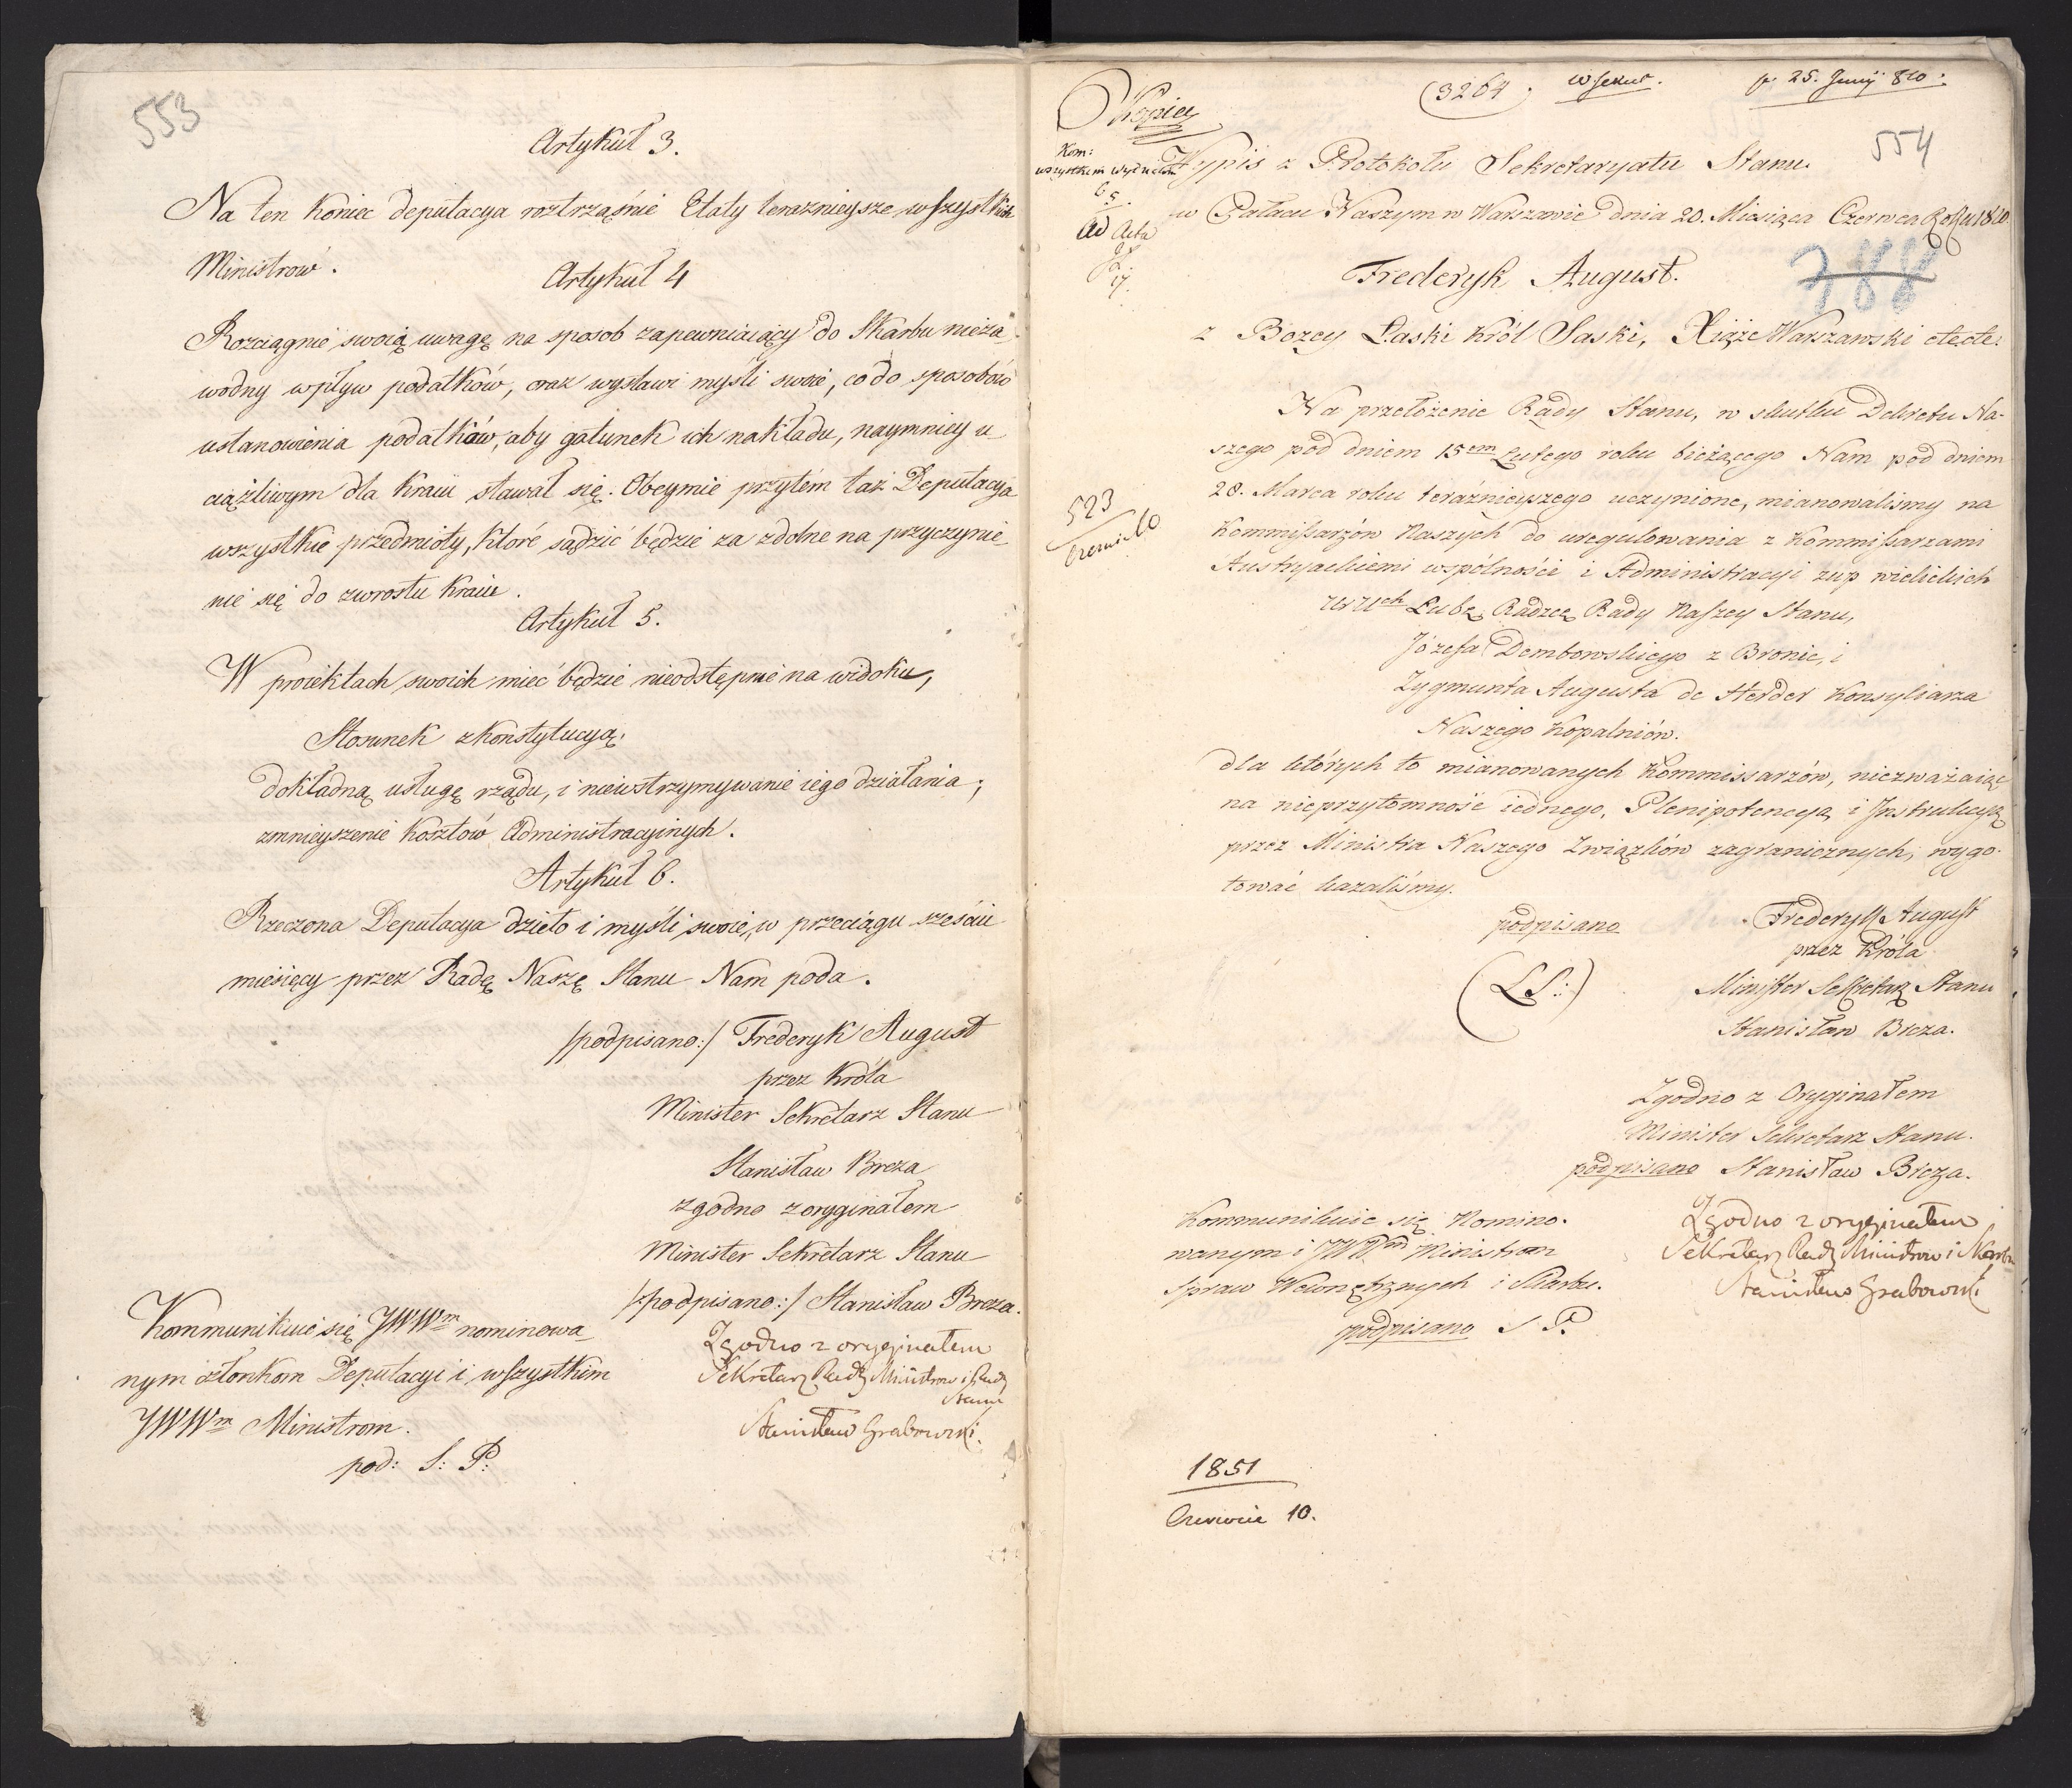 553
Artykuł 3.
Na ten koniec deputacya roztrząśnie Etaty teraznieysze wszystkich
Ministrow.
Artykuł 4
Rozciągnie swoią uwagę na sposob zapewniaiący do Skarbu nieza-
wodny wpływ podatków, oraz wystawi myśli swoie, co do sposobów
ustanowienia podatków, aby gatunek ich nakładu, naymniey u-
ciążliwym dla Kraiu stawał się. Obeymie przytém taż Deputacya
wszystkie przedmioty, które sądzić będzie za zdolne na przyczynie-
nie się do zwrostu Kraiu.
Artykuł 5.
W proiektach swoich mieć będzie nieodstępnie na widoku,
Stosunek z Konstytucyą.
dokładną usługę rządu, i niewstrzymywanie iego działania;
zmnieyszenie kosztów Administracyinych.
Artykuł 6.
Rzeczona Deputacya dzieło i myśli swoie, w przeciągu sześciu
miesięcy przez Radę Naszę Stanu Nam poda.
/podpisano:/ Frederyk August
przez Króla
Minister Sekretarz Stanu
Stanisław Breza
zgodno z oryginałem
Minister Sekretarz Stanu
/podpisano:/ Stanisław Breza.
Kommunikuie się JWWm nominowa-
nym członkom Deputacyi i wszystkim
JWWm Ministrom.
pod: S: P:
Zgodno z oryginałem
Sekretarz Rady Ministrow i Rady
Stanu
Stanisław Grabowski.
Kopiey
(3264)
25. Junij 810.
554
Kom:
wszystkim wydziałom
Ad Acta
Wypis z Protokołu Sekretaryatu Stanu.
w Pałacu Naszym w Warszawie dnia 20. Miesiąca Czerwca Roku 1810.
788
Frederyk August.
z Bozey Łaski Król Saski, Xiąże Warszawski etc etc.
Na przełożenie Rady Stanu, w skutku Dekretu Na-
szego pod dniem 15em Lutego roku bieżącego Nam pod dniem
28. Marca roku teraźnieyszego uczynione, mianowaliśmy na
Kommissarzów Naszych do uregulowania z Kommissarzami
Austryackiemi wspólności i Administracyi żup wielickich
Łubę, Radzcę Rady Naszey Stanu,
Józefa Dembowskiego z Bronic, i
Zygmunta Augusta de Herder Konsyliarza
Naszego Kopalniów.
dla których to mianowanych Kommissarzów, niezważaiąc
na nieprzytomność iednego, Plenipotencyą i Instrukcyą
przez Ministra Naszego Związków zagranicznych, wygo-
tować kazaliśmy.
523
Czerwiec 10
podpisano Frederyk August
przez Króla
(LS:)
Minister Sekretarz Stanu
Stanisław Breza.
Zgodno z Oryginałem
Minister Sekretarz Stanu.
podpisano Stanisław Breza.
Kommunikuie się Nomino-
wanym i JWWm Ministrom
Spraw Wewnętrznych i Skarbu.
podpisano S P.
Zgodno z oryginałem
Sekretarz Rady Ministrow i
Stanisław Grabowski
1851
Czerwcie 10.